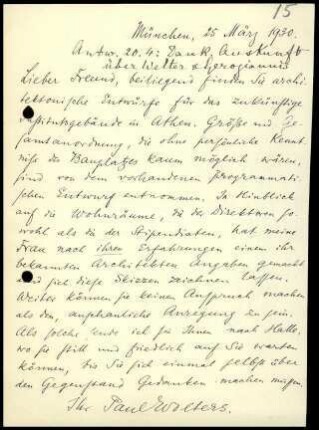 15
München, 25 März 1930.
Antw. 20.4: Dank, Auskunft
über Welter
Lieber Freund, beiliegend finden Sie archi-
tektonische Entwürfe für das zukünftige
Institutsgebäude in Athen. Größe und Ge-
samtanordnung, die ohne persönliche Kennt-
nisse des Bauplatzes kaum möglich wären,
sind von dem vorhandenen programmati-
schen Entwurf entnommen. In Hinblick
auf die Wohnräume, die der Direktoren so-
wohl als die der Stipendiaten, hat meine
Frau nach ihren Erfahrungen einem ihr
bekannten Architekten Angaben gemacht
und sich diese Skizzen zeichnen lassen.
Weiter können sie keinen Anspruch machen
als den, anschauliche Anregung zu sein.
Als solche sende ich sie Ihnen nach Halle,
wo sie still und friedlich auf Sie warten
können, bis Sie sich einmal selbst über
den Gegenstand Gedanken machen mögen.
Ihr Paul Wolters.